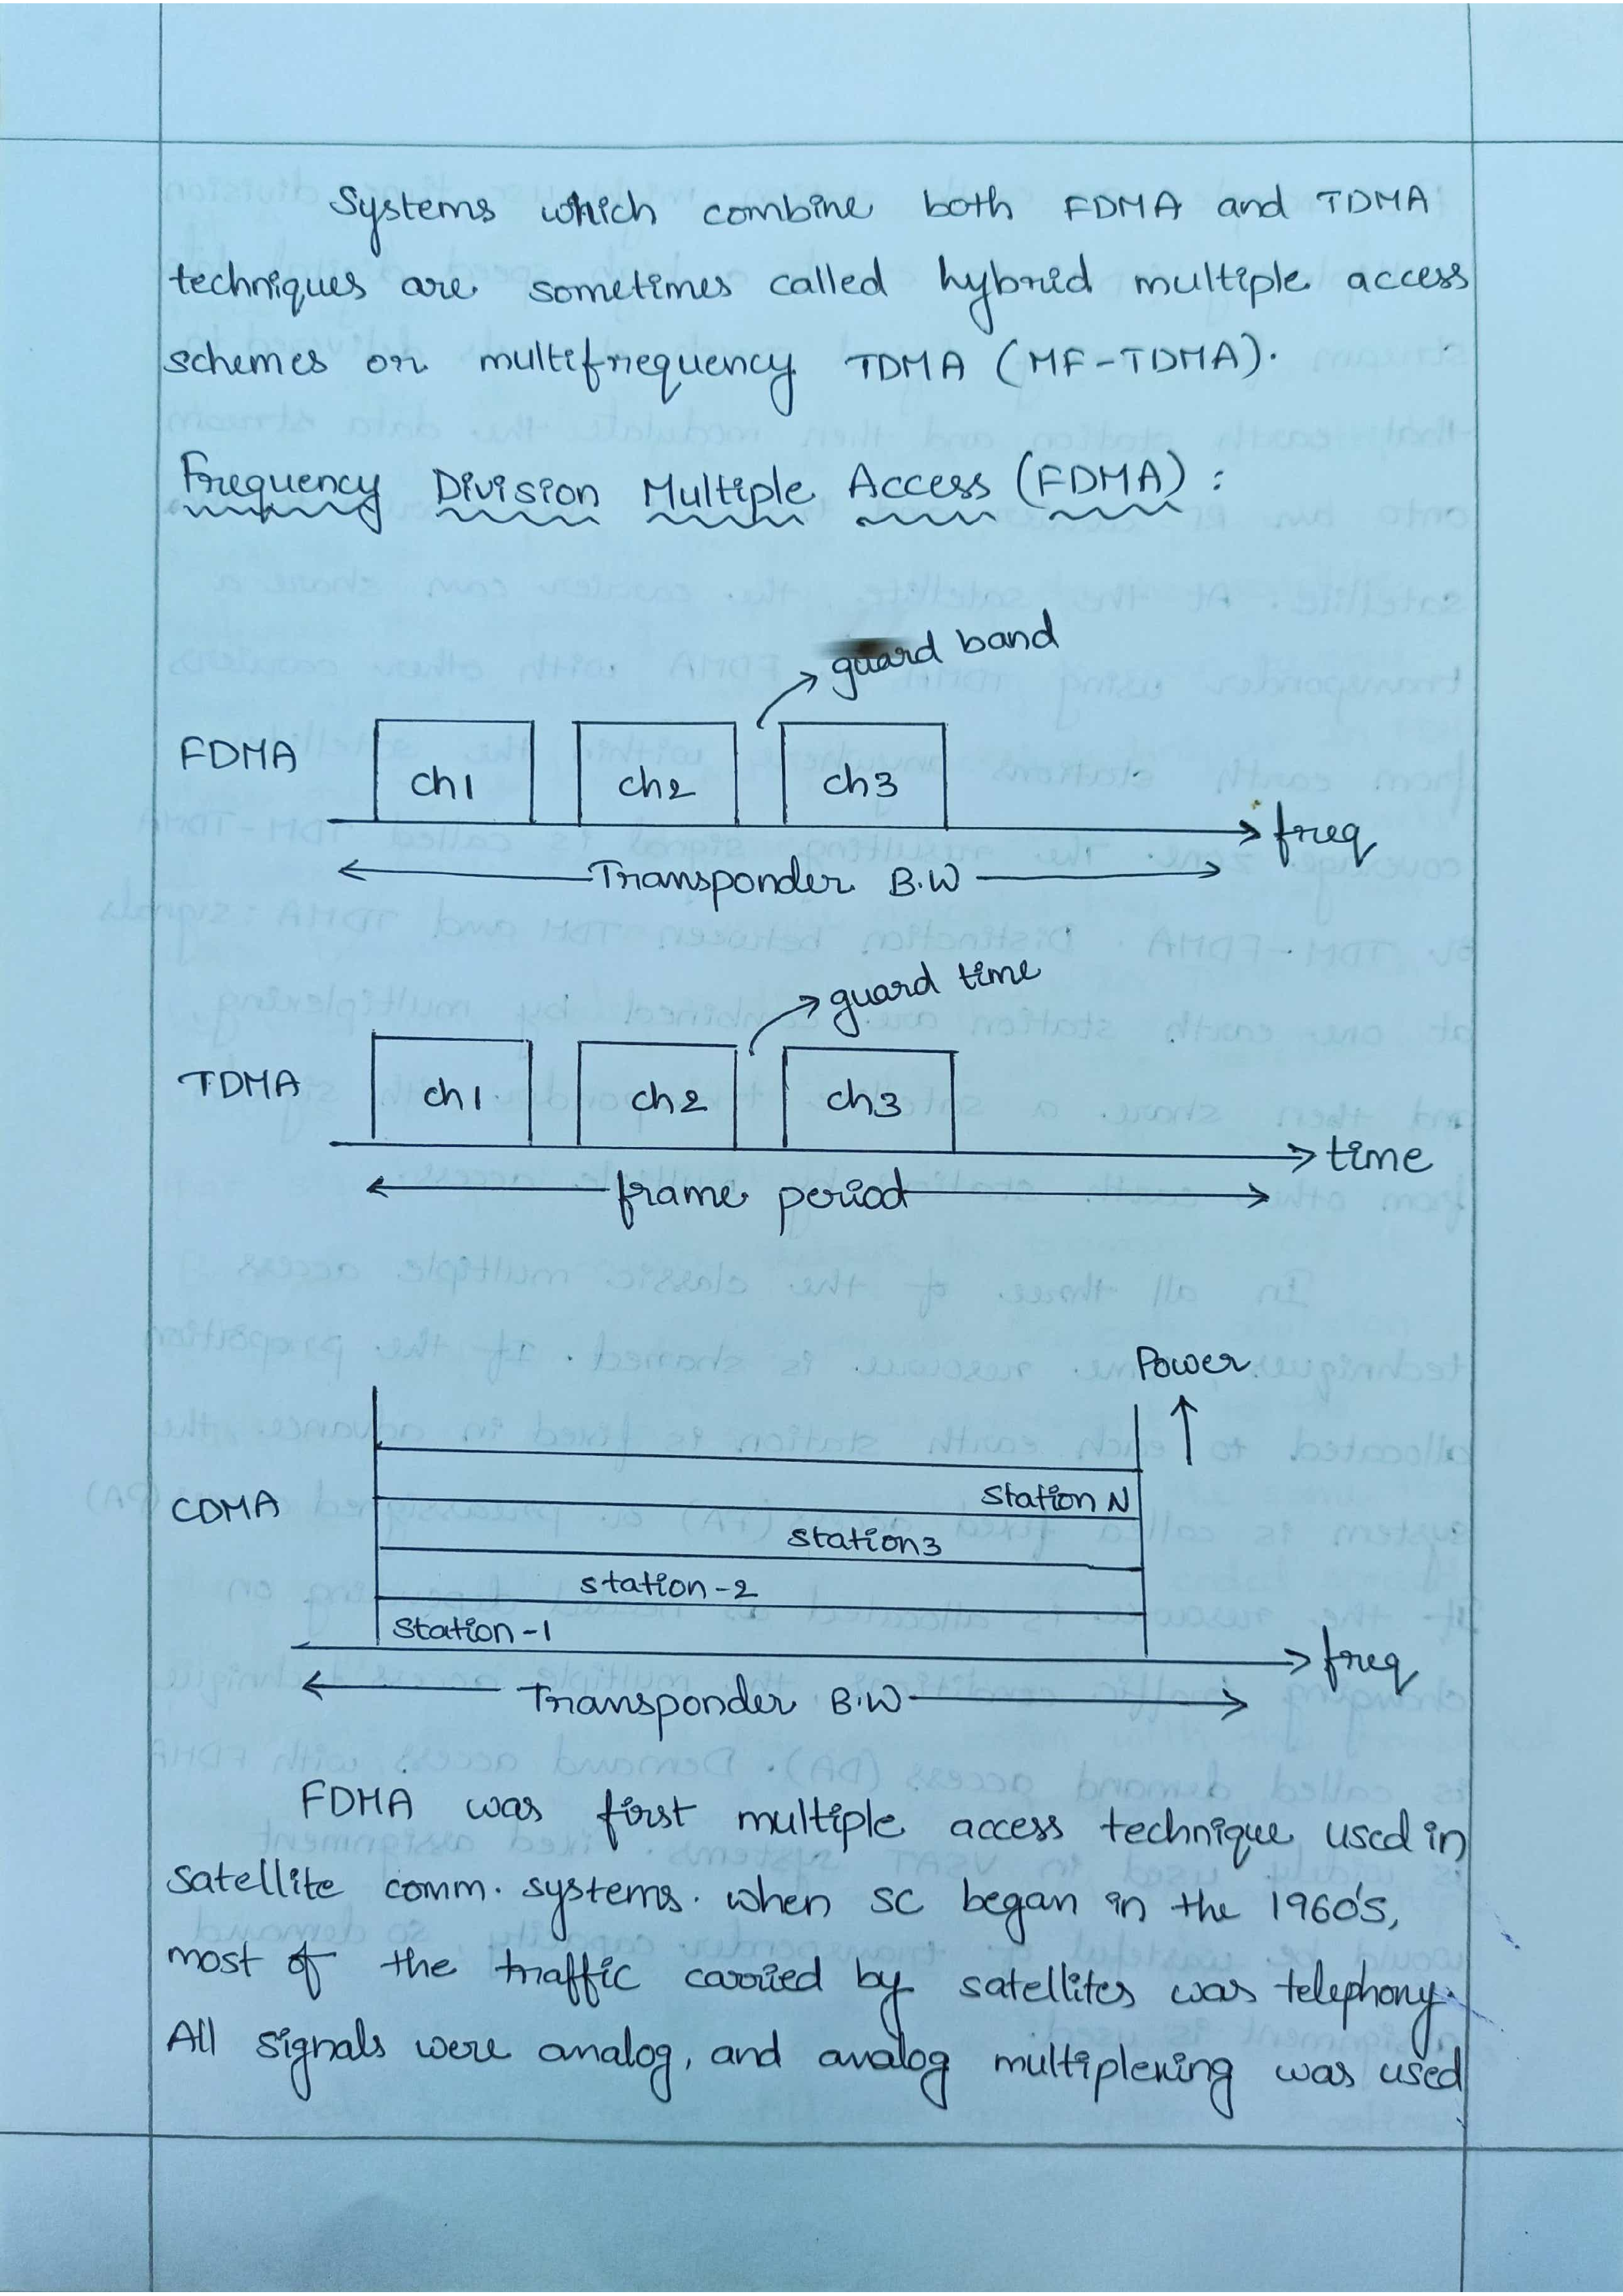 Systems which combine both FDMA and TDMA
techniques are sometimes called hybrid multiple access
schemes or multifrequency TDMA (MF-TDMA).
Frequency Division Multiple Access (FDMA) :
guard band
FDMA
ch1 ch2 ch3
freq
Transponder B.W
guard time
TDMA
ch1 ch2 ch3
time
frame period
Power
CDMA
Station N
Station3
station-2
Station-1
freq
Transponder B.W
FDMA was first multiple access technique used in
satellite comm. systems. when SC began in the 1960's,
most of the traffic carried by satellites was telephony.
All signals were analog, and analog multiplexing was used